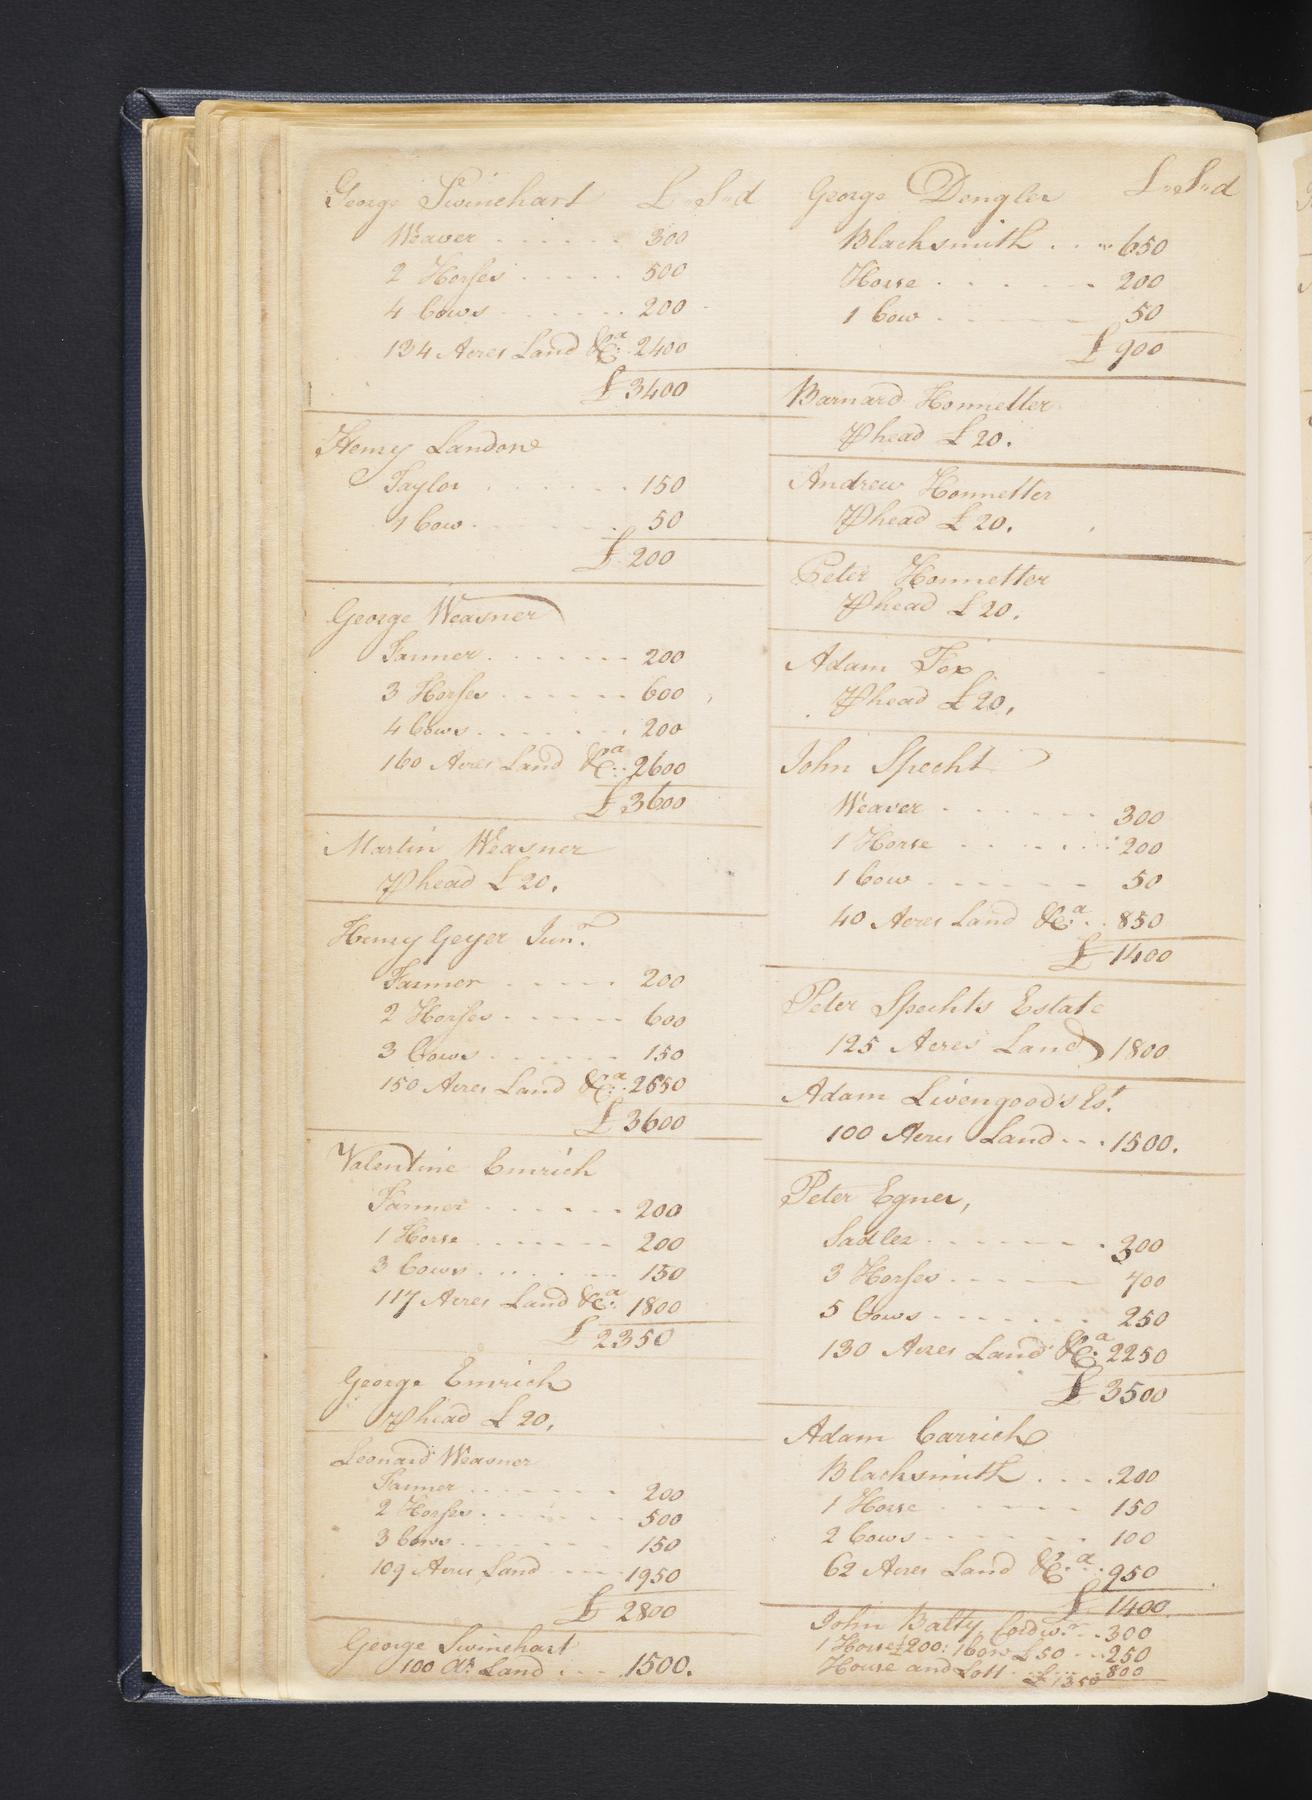 George Swinehart L"S"d
Weaver ...... 300
2 Horses ..... 500
4 Cows ....... 200
134 Acres Land &Ca. 2400
£ 3400
Henry Landone
Taylor ....... 150
1 Cow ....... 50
£ 200
George Weasner
Farmer ....... 200
3 Horses ...... 600
4 Cows ....... 200
160 Acres Land &Ca.. 2600
£ 3600
Martin Weasner
⅌ head £ 20.
Henry Geyer Junr.
Farmer ..... 200
2 Horses ..... 600
3 Cows ...... 150
150 Acres Land &Ca.. 2650
£ 3600
Valentine Emrich
Farmer ...... 200
1 Horse ....... 200
3 Cows ....... 150
117 Acres Land &Ca. 1800
£ 2350
George Emrich
⅌ head £ 20,
Leonard Weasner
Farmer ....... 200
2 Horses ...... 500
3 Cows ....... 150
109 Acres Land .... 1950
£ 2800
George Swinehart
100 As. Land .... 1500.
George Dengler L"S"d
Blacksmith ... 650
Horse ...... 200
1 Cow ...... 50
£ 900
Barnard Honnetter
⅌ head £ 20.
Andrew Honnetter
⅌ head £ 20.
Peter Honnetter
⅌ head £ 20.
Adam Fox
⅌ head £ 20,
John Specht
Weaver ....... 300
1 Horse ...... 200
1 Cow ...... 50
40 Acres Land &Ca... 850
£ 1400
Peter Spechts Estate
125 Acres Land 1800
Adam Livengood's Est.
100 Acres Land ... 1500.
Peter Egner,
Sadler ....... 300
3 Horses .... 700
5 Cows ....... 250
130 Acres Land &Ca. 2250
£ 3500
Adam Carrich
Blacksmith .... 200
1 Horse ..... 150
2 Cows ...... 100
62 Acres Land &Ca... 950
£ 1400
John Batty Cordwr. .. 300
1 Horse £200: 1 Cow £50 ... 250
House and Lott ...... 800
£ 1350